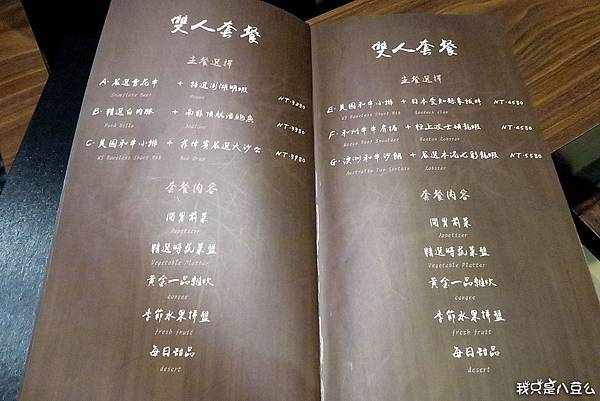 雙人套餐
主餐選擇
A.嚴選雪花牛 + 特選澎湖明蝦
Snowflake Beef Prawn
B.精選白肉豚 + 南非頂級活鮑魚
Pork Belly Abalone
C.美國和牛小排 + 嚴選大沙公
US Boneless Short Rib Mud Crab
套餐內容
開胃前菜
Appetizer
精選時蔬菜盤
Vegetable Platter
黃金一品雜炊
congee
季節水果拼盤
fresh fruit
每日甜品
desert
雙人套餐
主餐選擇
E.美國和牛小排 + 日本愛知 NT.4580
US Boneless Short Rib Geoduck clam
F.和州牛 + 極上波士頓龍蝦 NT.4580
Boston Lobster
G.澳洲和牛沙朗 + 嚴選本港七彩龍蝦 NT.5580
Australia Top Sirloin Lobster
套餐內容
開胃前菜
Appetizer
精選時蔬菜盤
Vegetable Platter
黃金一品雜炊
congee
季節水果拼盤
fresh fruit
每日甜品
desert
我只是八豆么